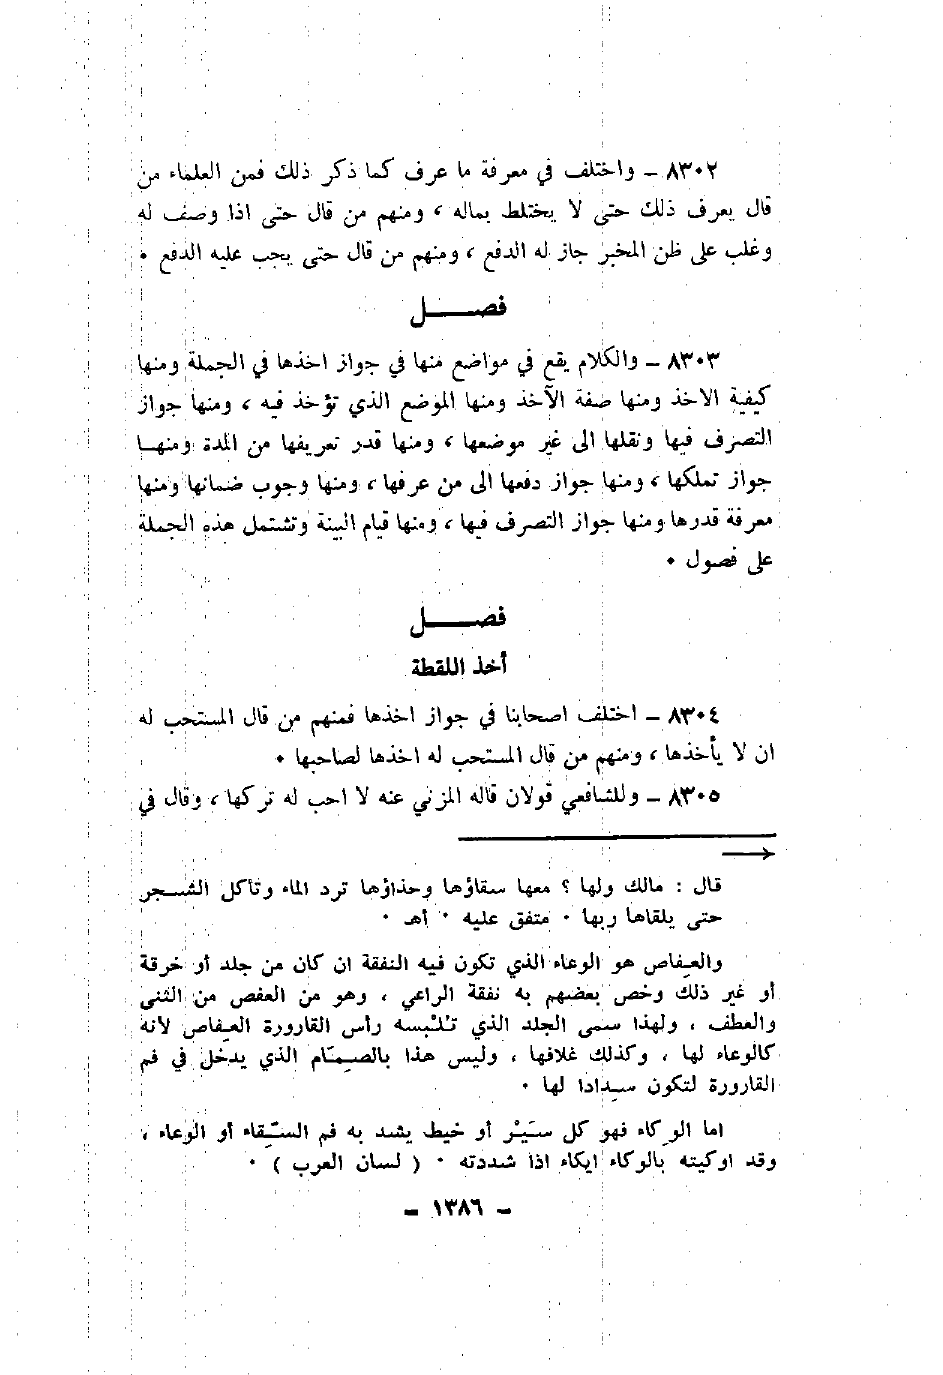 ٨٣٠٢ ــ واختلف في معرفة ما عرف كما ذكر ذلك فمن العلماء من
قال يعرف ذلك حتى لا يختلط بماله ، ومنهم من قال حتى اذا وصف له
وغلب على ظن المخبر جاز له الدفع ، ومنهم من قال حتى يجب عليه الدفع ٠
فصـــــل
٨٣٠٣ ــ والكلام يقع في مواضع منها في جواز اخذها في الجملة ومنها
كيفية الاخذ ومنها صفة الآخذ ومنها الموضع الذي تؤخذ فيه ، ومنها جواز
التصرف فيها ونقلها الى غير موضعها ، ومنها قدر تعريفها من المدة ومنهـا
جواز تملكها ، ومنها جواز دفعها الى من عرفها ، ومنها وجوب ضمانها ومنها
معرفة قدرها ومنها جواز التصرف فيها ، ومنها قيام البينة وتشتمل هذه الجملة
على فصول ٠
فصـــــل
أخذ اللقطة
٨٣٠٤ ــ اختلف اصحابنا في جواز اخذها فمنهم من قال المستحب له
ان لا يأخذها ، ومنهم من قال المستحب له اخذها لصاحبها ٠
٨٣٠٥ ــ وللشافعي قولان قاله المزني عنه لا احب له تركها ، وقال في
قال : مالك ولها ؟ معها سقاؤها وحذاؤها ترد الماء وتأكل الشـجر
حتى يلقاها ربها ٠ متفق عليه ٠ أهـ ٠
والعِفاص هو الوعاء الذي تكون فيه النفقة ان كان من جلد أو خرقة
أو غير ذلك وخص بعضهم به نفقة الراعي ، وهو من العفص من الثنى
والعطف ، ولهذا سمى الجلد الذي تُلْبِسه رأس القارورة العِفاص لأنه
كالوعاء لها ، وكذلك غلافها ، وليس هذا بالصِمَّام الذي يدخل في فم
القارورة لتكون سِدادا لها ٠
اما الوِكاء فهو كل سَيْر أو خيط يشد به فم السِّقاء أو الوعاء ،
وقد اوكيته بالوكاء ايكاء اذا شددته ٠ ( لسان العرب ) ٠
ــ ١٣٨٦ ــ